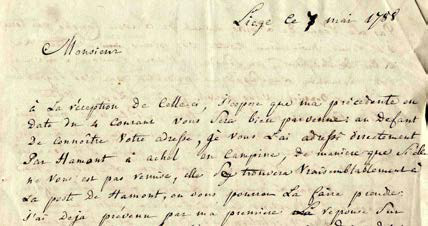 Liege ce 7 mai 1788
Monsieur
à La réception de Celle ci, J'espere que ma précédente en
date du 4 Courant vous sera bien parvenue: au defaut
de connoître Votre adresse, je vous L'ai adressé directement
Par Hamont à achel en Campine, de maniere que Si elle
ne vous est pas remise, elle se trouvera Vraisemblablement à
La poste de Hamont, ou vous pourrez La faire prendre.
J'ai Deja prévenu par ma premiere La reponse Sur